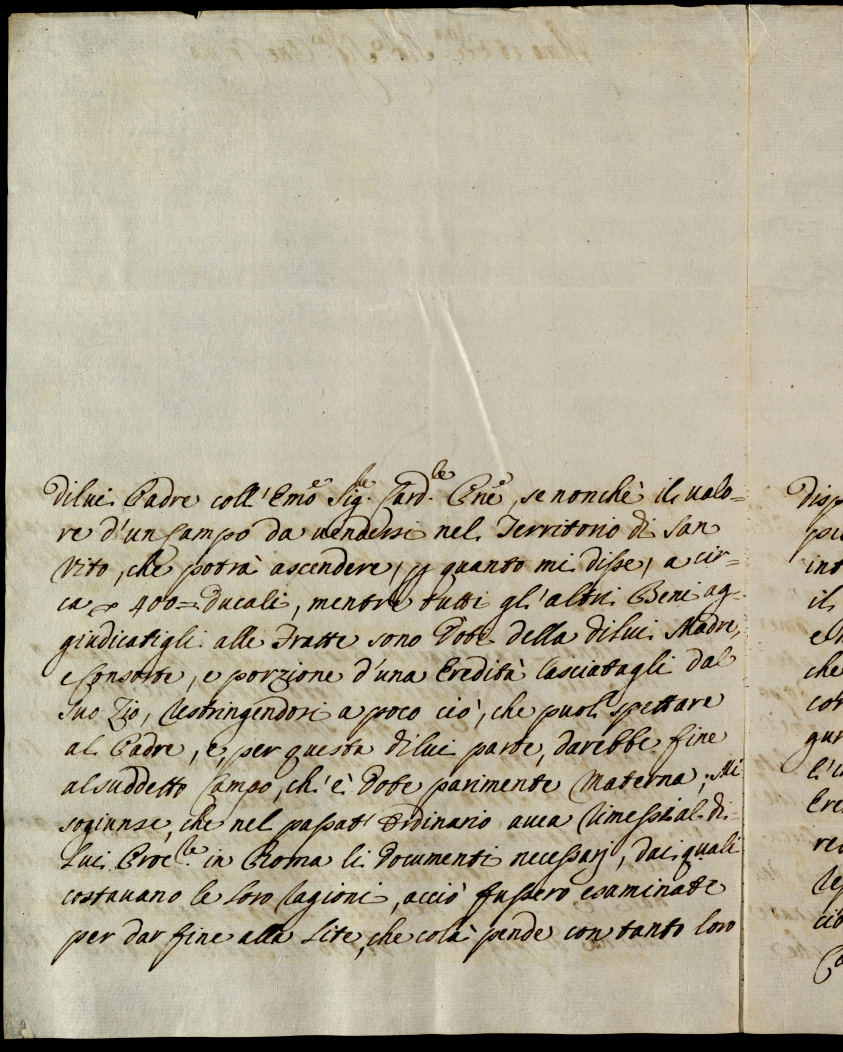 dilui Padre coll' Emo Sig.re Card.le Cnê, se nonchè il valo=
re d'un Campo da vendersi nel Territorio di San
Vito, che potrà ascendere, p quanto mi disse, a cir=
ca 400= Ducati, mentre tutti gl'altri Beni ag=
giudicatigli alle Fratte sono Dote della dilui Madre,
e Consorte, e porzione d'una Eredità lasciatagli dal
suo Zio, restringendosi a poco ciò, che puol spettare
al Padre, e per questa dilui parte, darebbe fine
al suddetto Campo, ch'è Dote parimente Materna; Mi
sogiunse, che nel passat' Ordinario avea rimessi al di=
lui Proc.re in Roma li Documenti necessarj, dai quali
costavano le loro ragioni, acciò fussero esaminate
per dar fine alla Lite, che colà pende con tanto loro
disp
piu
int
il
che
cor
gur
l'i
Ere
re
cio